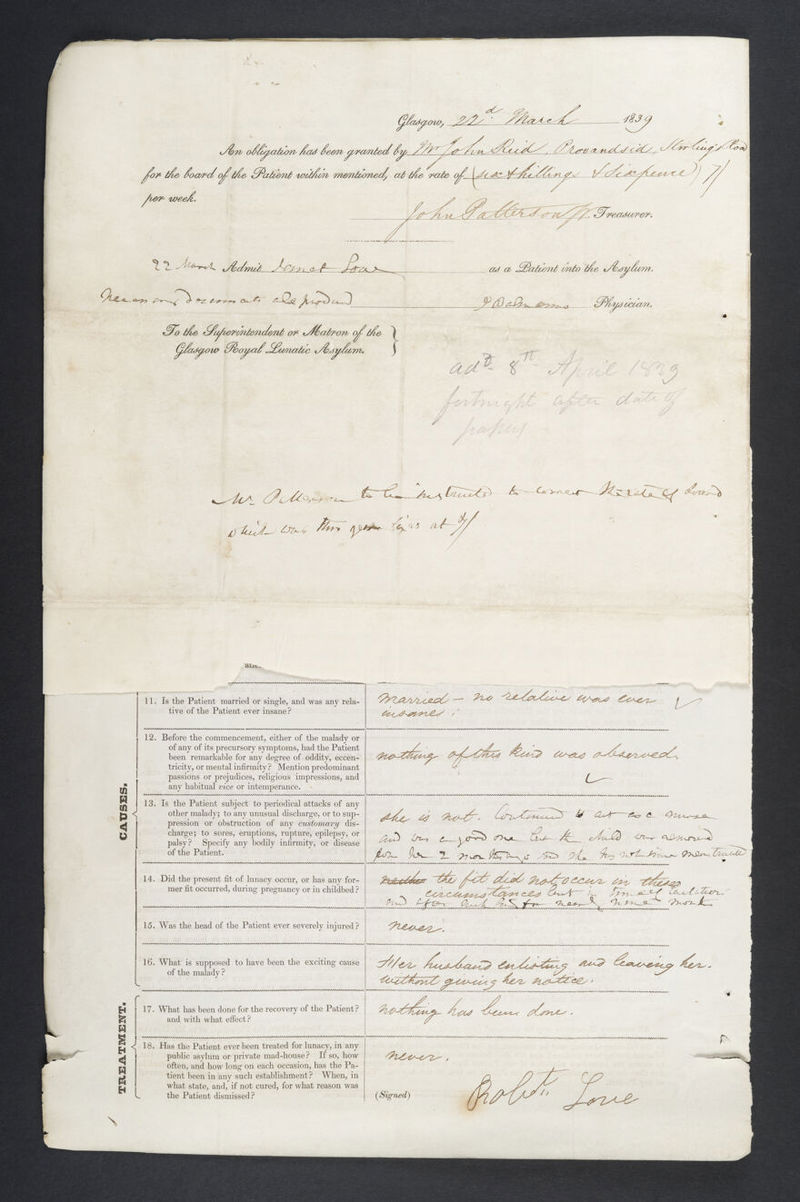 Glasgow, 22d March 1839
An obligation has been granted by Mr John Reid, Provandsid, Stirling's Road
for the board of the Patient within mentioned, at the rate of (six shillings & sixpence) 7/
per week.
John Patterson Treasurer.
22 March Admit Janet Love as a Patient into the Asylum.
Necessary documents produced Physician.
To the Superintendent or Matron of the
Glasgow Royal Lunatic Asylum.
add 8th April 1839
fortnight after date of
papers
Mr to be instructed to correct the rate of board
which was this year at 7/
11. Is the Patient married or single, and was any rela-
tive of the Patient ever insane?
married – no relative was ever
insane.
12. Before the commencement, either of the malady or
of any of its precursory symptoms, had the Patient
been remarkable for any degree of oddity, eccen-
tricity, or mental infirmity? Mention predominant
passions or prejudices, religious impressions, and
any habitual vice or intemperance.
nothing of this kind was observed.
CAUSES.
13. Is the Patient subject to periodical attacks of any
other malady; to any unusual discharge, or to sup-
pression or obstruction of any customary dis-
charge; to sores, eruptions, rupture, epilepsy, or
palsy? Specify any bodily infirmity, or disease
of the Patient.
she is not. Continued to act as a nurse
and was a good one the child was removed
from her 2 months ago and she has not since menstruated
14. Did the present fit of lunacy occur, or has any for-
mer fit occurred, during pregnancy or in childbed?
neither the fit did not occur in these
circumstances but
and for nearly nine months
15. Was the head of the Patient ever severely injured?
never.
16. What is supposed to have been the exciting cause
of the malady?
Her husband enlisting and leaving her.
without giving her notice.
TREATMENT.
17. What has been done for the recovery of the Patient?
and with what effect?
nothing has been done.
18. Has the Patient ever been treated for lunacy, in any
public asylum or private mad-house? If so, how
often, and how long on each occasion, has the Pa-
tient been in any such establishment? When, in
what state, and, if not cured, for what reason was
the Patient dismissed?
never.
(Signed) Robt. Love